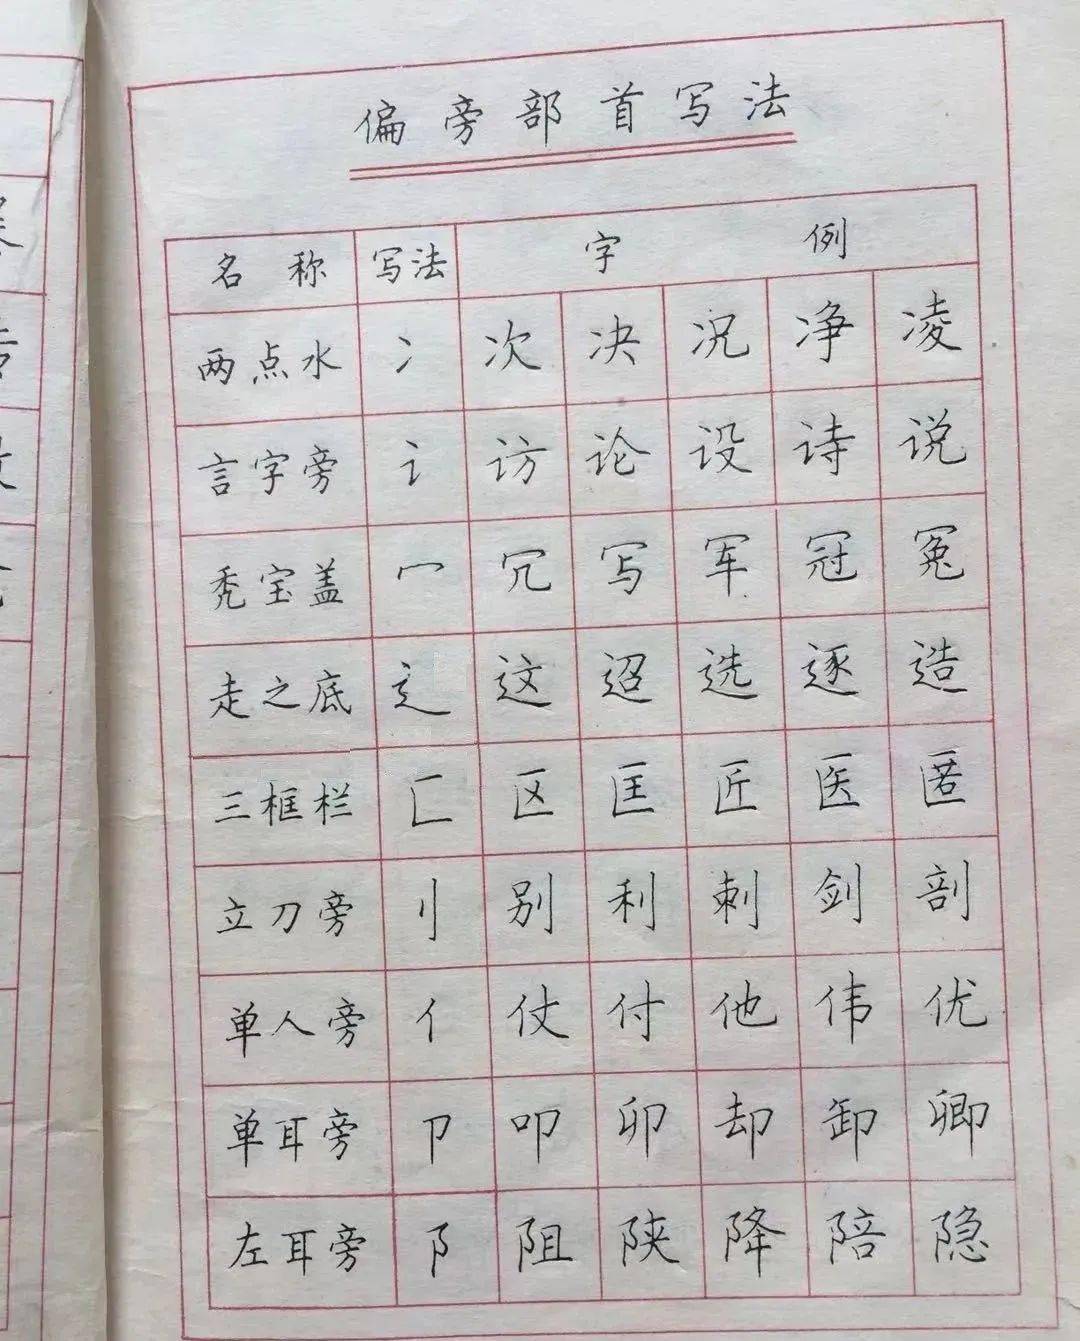 偏旁部首写法
名称 写法 字例
两点水 冫 次 决 况 净 凌
言字旁 讠 访 论 设 诗 说
秃宝盖 冖 冗 写 军 冠 冤
走之底 辶 这 迢 选 逐 造
三框栏 匚 区 匡 匠 医 匿
立刀旁 刂 别 利 刺 剑 剖
单人旁 亻 仗 付 他 伟 优
单耳旁 卩 叩 卯 却 卸 卿
左耳旁 阝 阻 陕 降 陪 隐